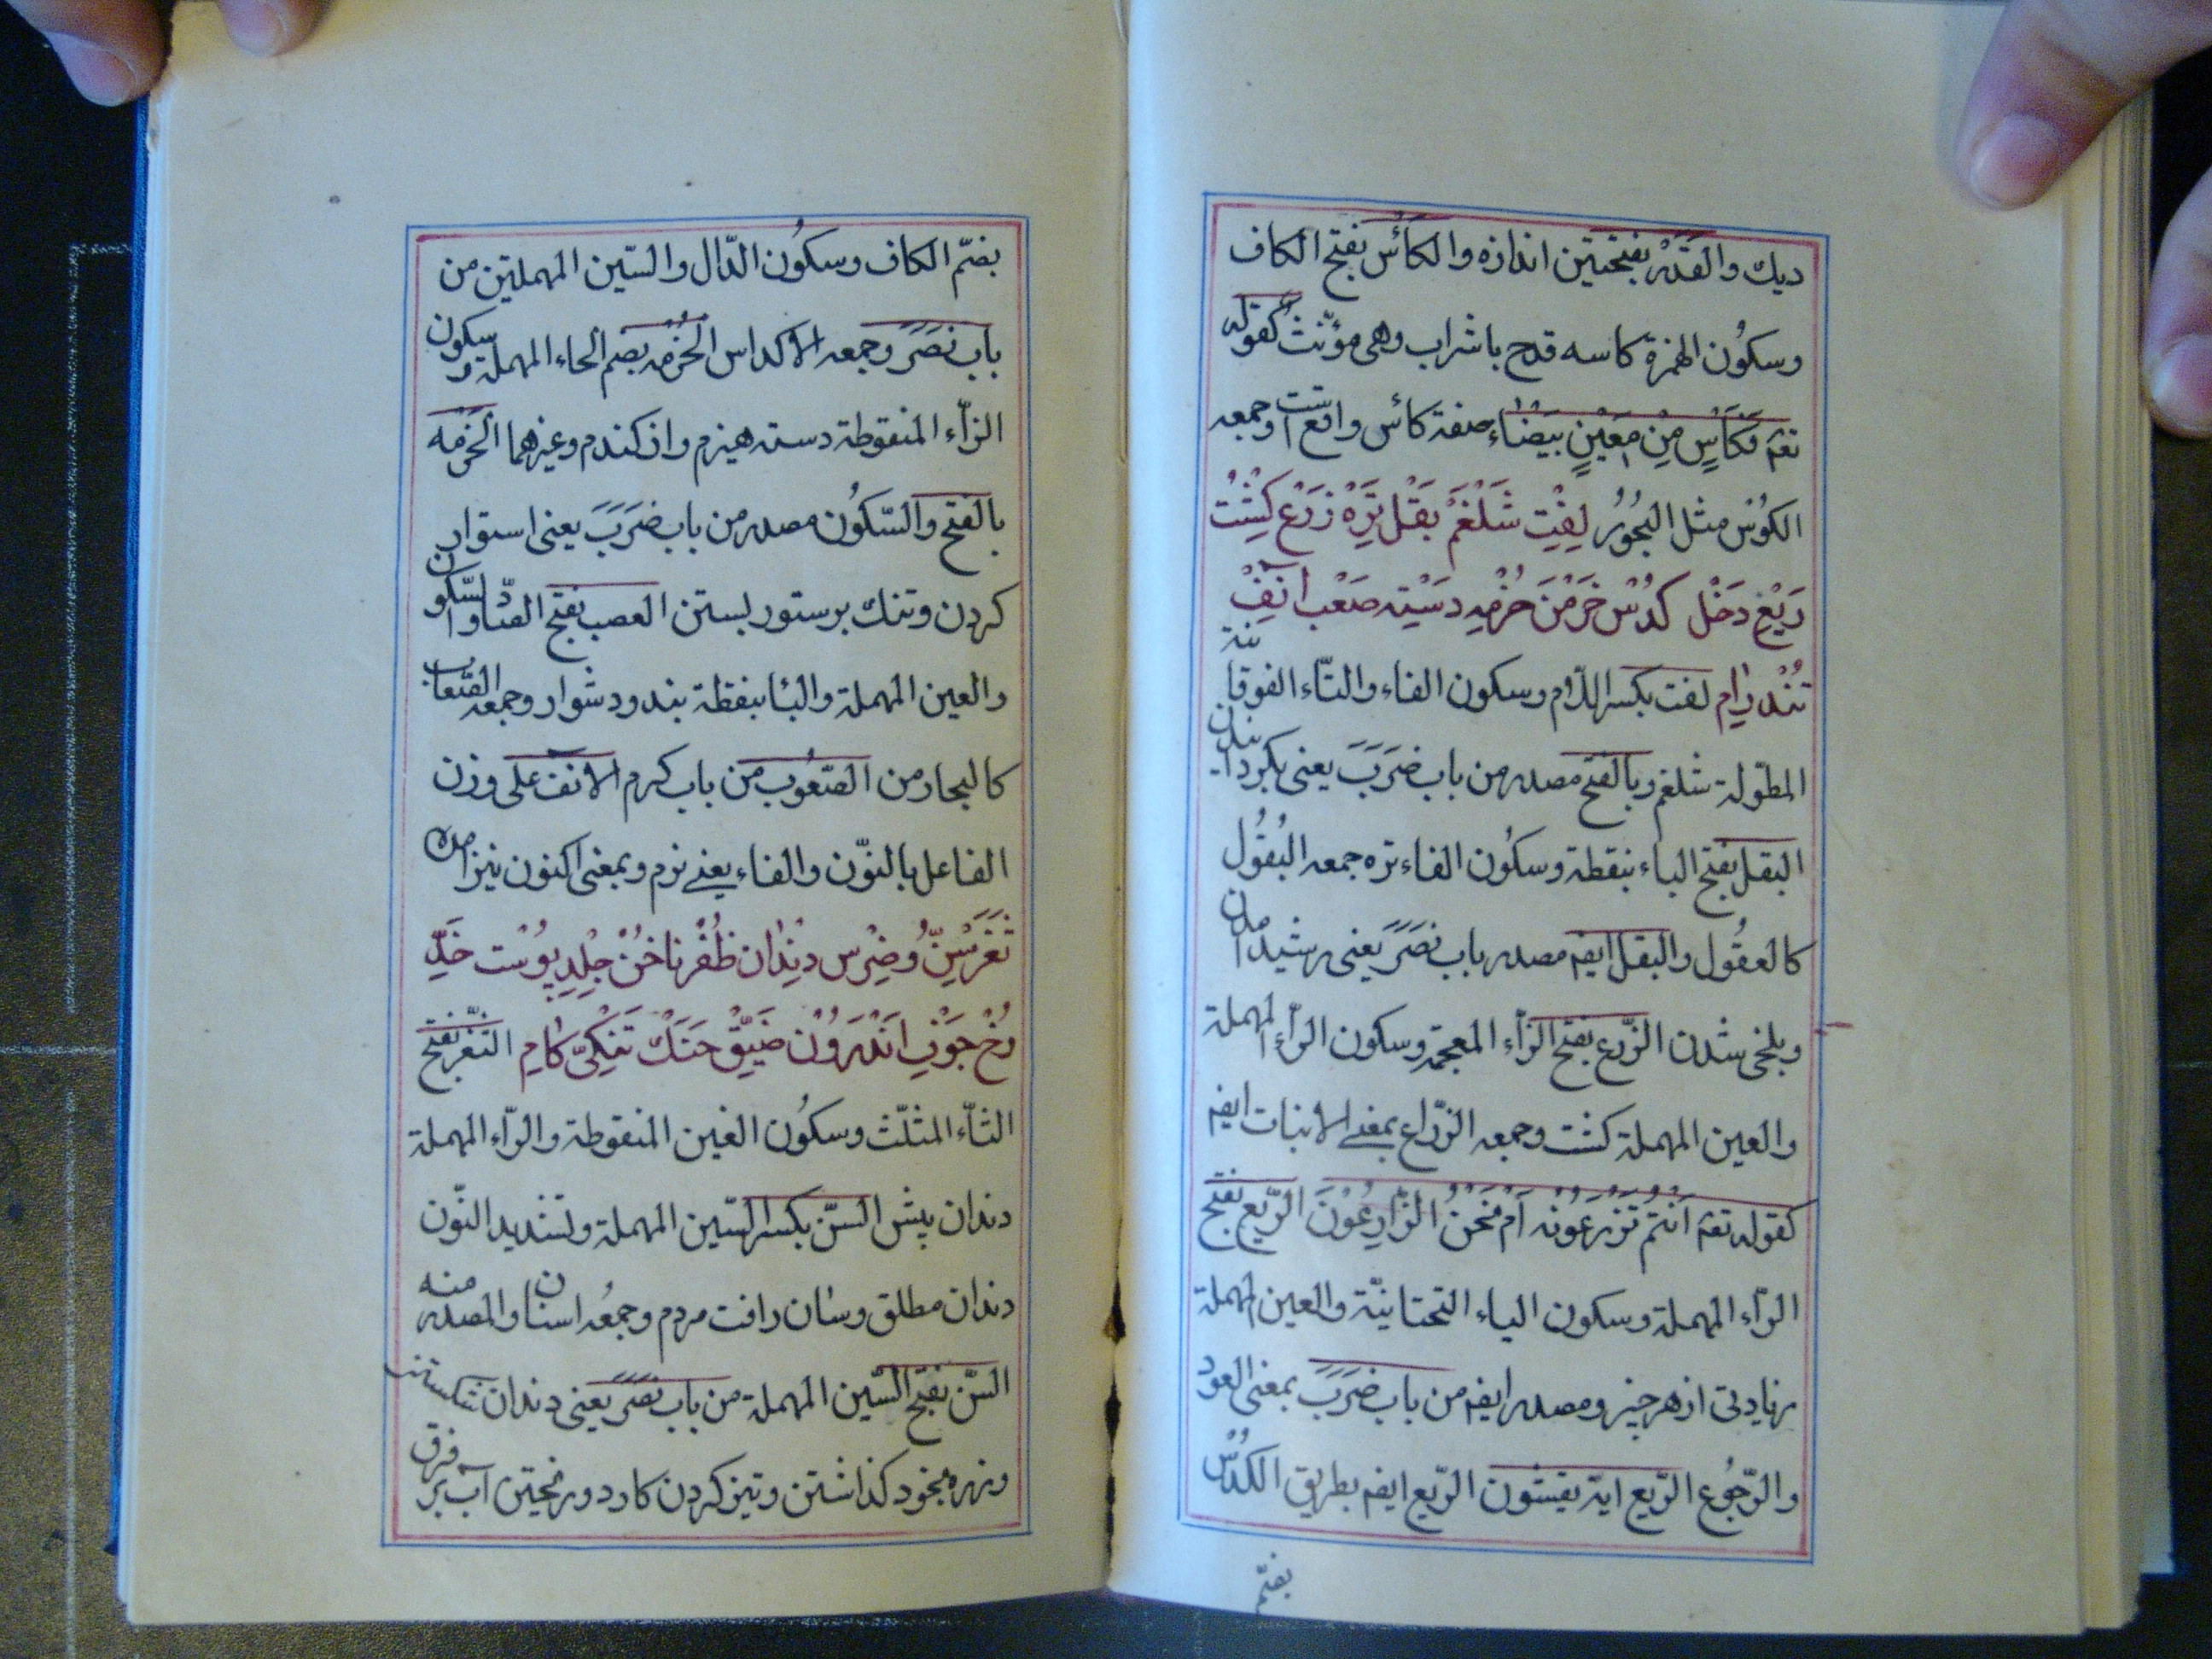 ديك والقَدَر بفتحتين اندازه والكَأس بفتح الكاف
وسكُون الهمزة كاسه قدح با شراب وهى مؤنّث كقوله
تعم فكَأسٍ مِن مَعِينٍ بيضاء صفة كأس واقع است وجمعه
الكوُس مثل البحُور لِفت شَلْغَم بَقْل تَرِه زَرْع كِشت
رَيْع دَخْل كدُس خَرْمَن حُزْمه دَسْته صَعْب انِف
تُنْد رام لفت بكسر اللام وسكون الفاء والتّاء الفوقانية
المطوّلة شلغم وبالفتح مصدر من باب ضَرَبَ يعنى بكردانيدن
البقل بفتح الباء بنقطة وسكُون الفاء تره جمعه البُقُول
كالعقُول والبقل ايضم مصدر باب نصَرَ يعنى رشيدن
وبلخى شدن الزّرع بفتح الزّاء المعجمة وسكون الرّاء المهملة
والعين المهملة كشت وجمعه الزّراع بمعنى الانبات ايضم
كقوله تعم اَنتُم تَزرَعُونَه اَم نَحنُ الزّارِعُونَ الرّيع بفتح
الرّاء المهملة وسكون الياء التحتانيّة والعين المهملة
زيادتى از هر چيز ومصدر ايضم من باب ضَرَبَ بمعنى العود
والرّجُوع الرّيع اية يفسّون الرّيع ايضم بطريق الكدُس
بضمّ
بضمّ الكاف وسكُون الدّال والسّين المهملتين من
باب نصَرَ وجمعه الاكداس الحُزمه بضم الحاء المهملة وسكون
الزّاء المنقوطة دسته هيزم واز كندم وغيرهما الحَزمه
بالفتح والسّكُون مصدر من باب ضَرَبَ يعنى استوار
كردن وتنك بر ستور بستن الصعب بفتح الصّاد والسّكون
والعين المهملة والبا بنقطة بند ودشوار وجمعه الصّعاب
كالبحار من الصّعُوب من باب كرم الانف على وزن
الفاعل بالنّون والفاء يعنى نرم وبمعنى اكنون نيز امده
ثَغَر سِنّ وضِرس دندان ظُفْر ناخُن جِلد پوُست خَدّ
رُخ جَوْف اَنْدَرُوُن ضَيِّق حَنَك تَنكِىّ كام الثّغر بفتح
الثّاء المثلّث وسكُون الغين المنقوطة والرّاء المهملة
دندان پيش السّنّ بكسر السّين المهملة وتشديد النّون
دندان مطلق وسان رافت مردم وجمعُه اسنان والمصدر منه
السّن بفتح السّين المهملة من باب نصَرَ يعنى دندان شكستن
وزهره بخود كذاشتن وتيز كردن كارد وريختن آب بر فرق